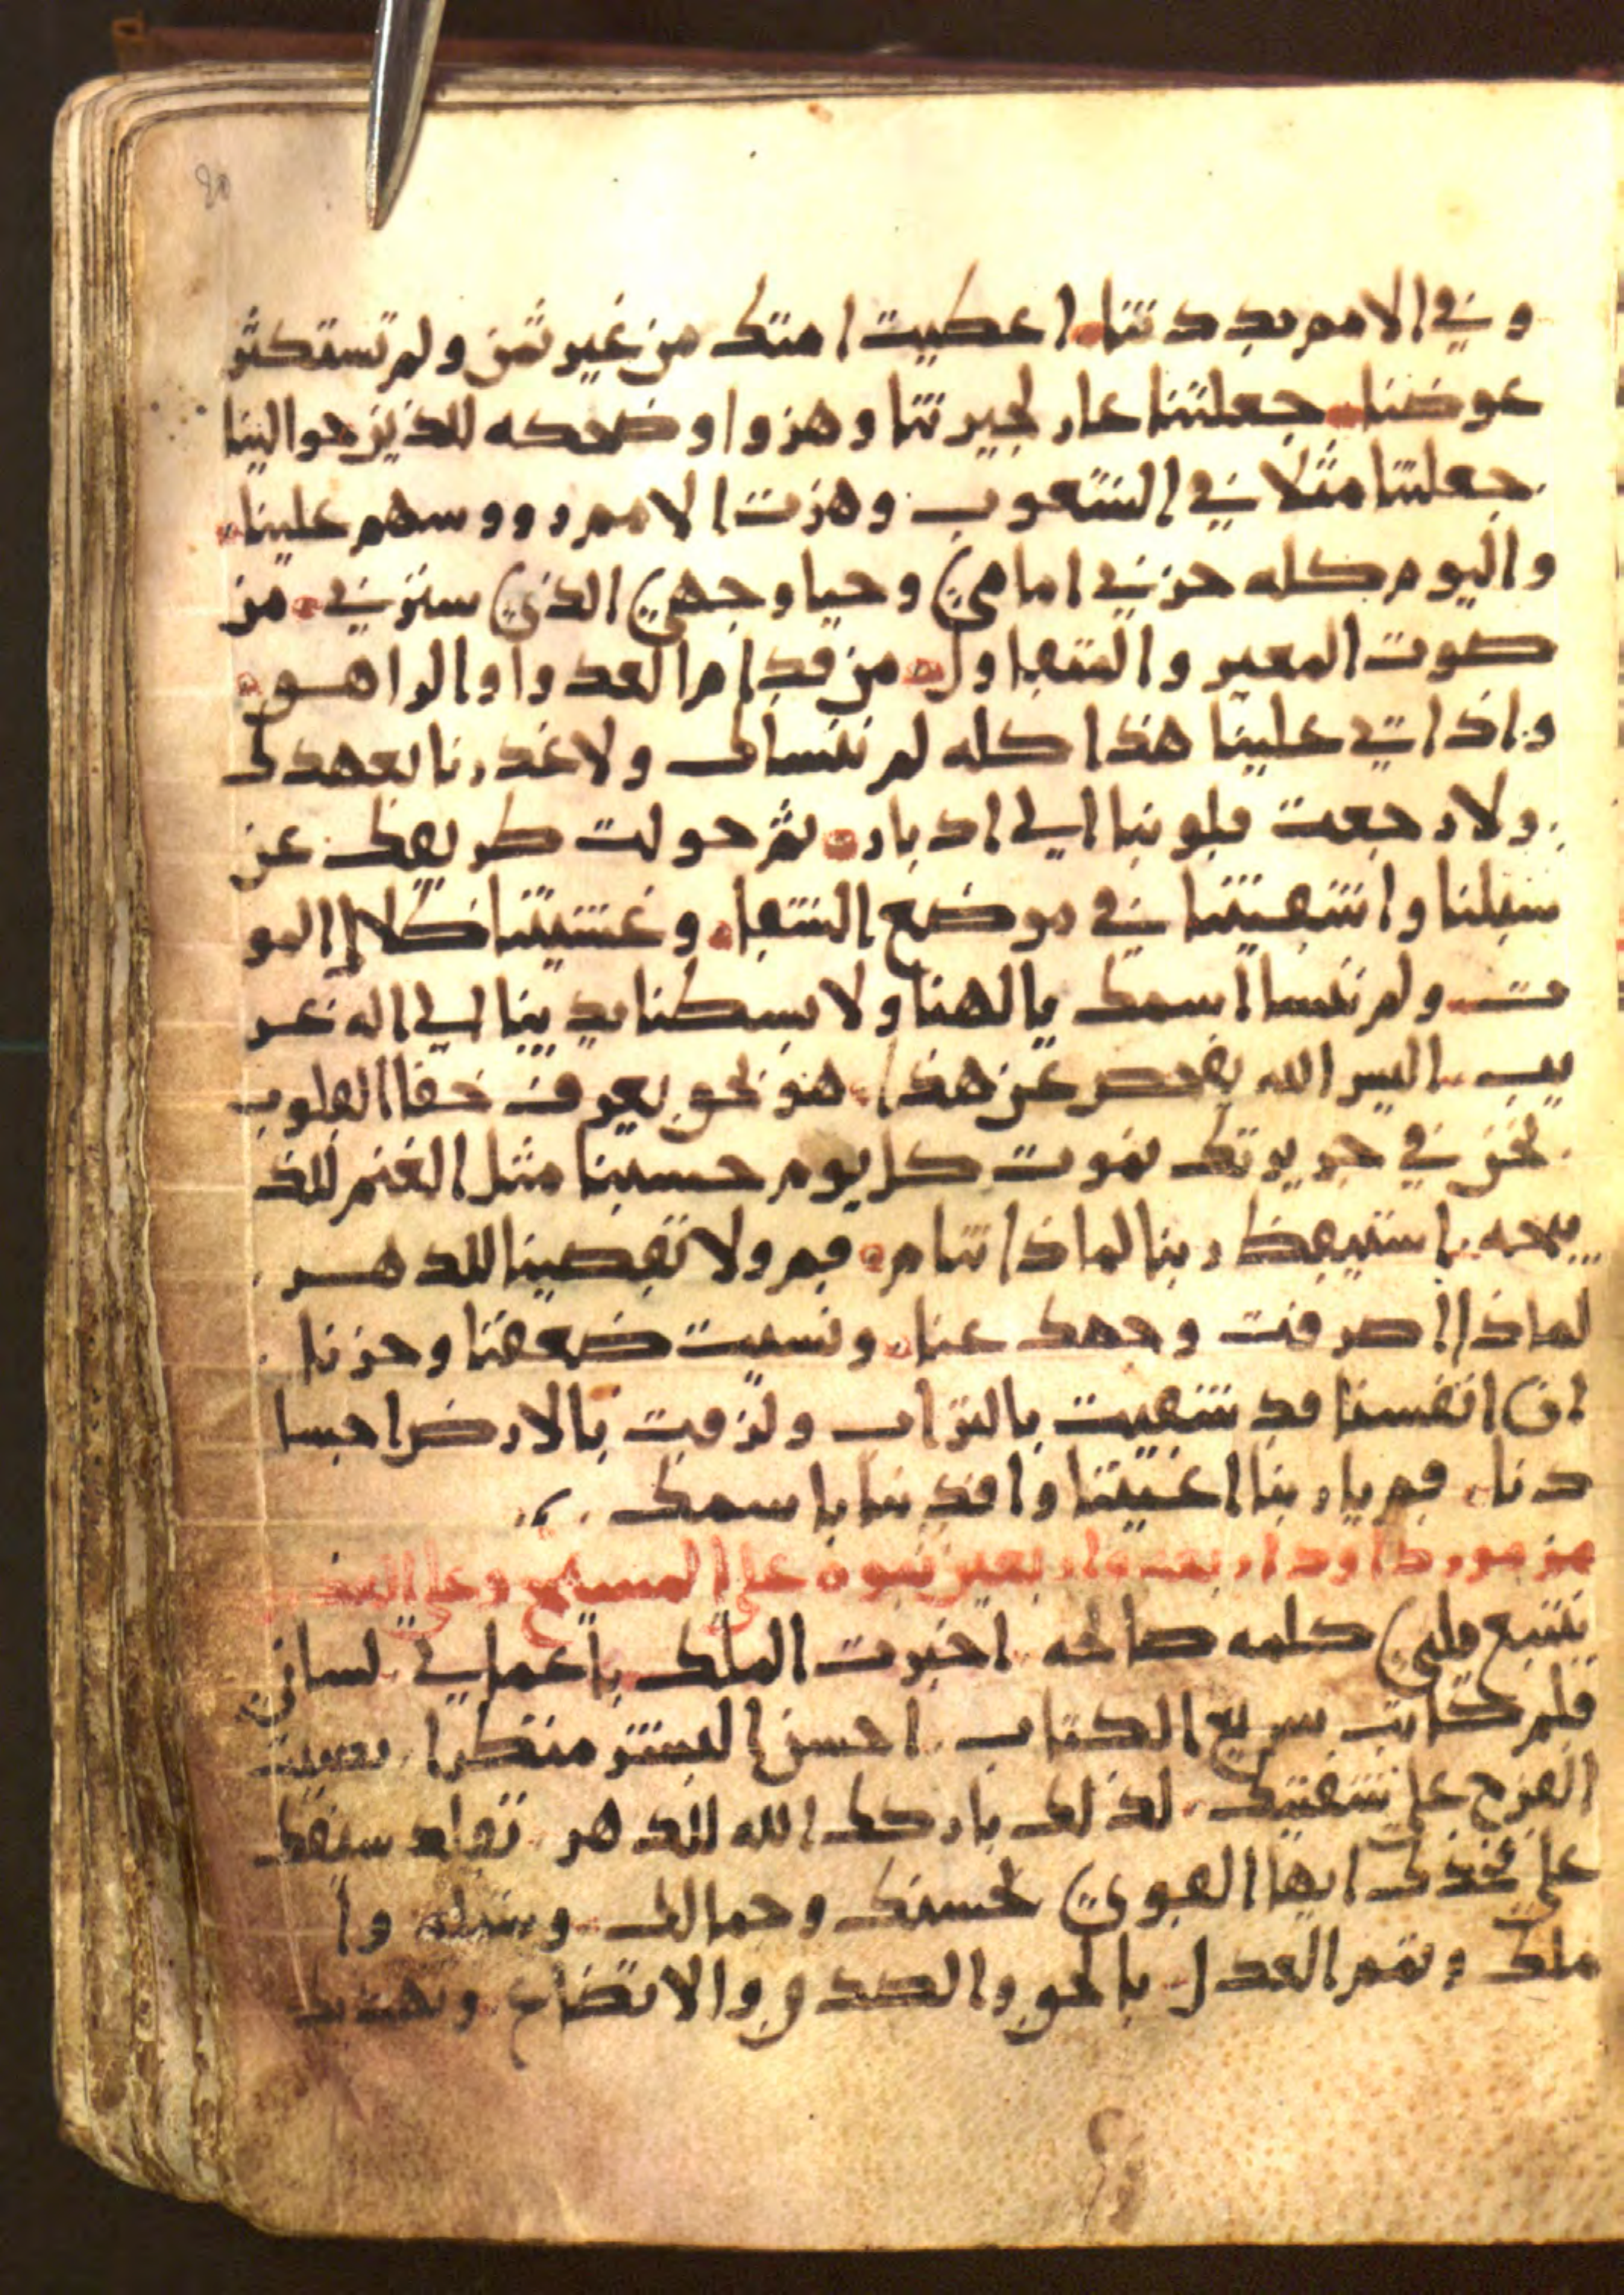 وفي الامم بددتنا اعطيت امتك من غير ثمن ولم تستكثر
عوضنا جعلتنا عار لجيرتنا وهزوا وضحكه للذين حوالينا
جعلتنا مثلا في الشعوب وهزت الامم رووسهم علينا
واليوم كله حزني امامي وحيا وجهي الذي سترني من
صوت المعير والمتقاول من قدام العدوا والراهـق
واذ اتي علينا هذا كله لم ننساك ولا غدرنا بعهدك
ولا رجعت قلوبنا الي ادبار ثم حولت طريقك عن
سبلنا واشقيتنا في موضع الشقا وغشيتنا ظلال المو
ت ولم ننسا اسمك يالهنا ولا بسطنا يدينا الي اله غر
يب اليس الله يفحص عن هذا هو نحو يعرف خفا القلوب
نحن في جريرتك نموت كل يوم حسبنا مثل الغنم للذ
بيحه استيقظ ربنا لماذا تنام قم ولا تقصينا للدهـر
لماذا اصرفت وجهك عنا ونسيت ضعفنا وحزنا
ان انفسنا قد شقيت بالتراب ولزقت بالارض اجسا
دنا قم يا ربنا اغيثنا وافدينا باسمك
مزمور داود اربعه واربعين نبوه علي المسيح وعلي
يشبع قلبي كلمه صالحه اخبرت الملك باعمالي لساني
قلم كاتب سريع الكتاب احسن البشر منظرا
الفرح علي شفتيك لذلك باركك الله للدهر تقلد سيفك
علي فخذك ايها القوي لحسنك وجمالك وا
ملك وتمم العدل بالحق والصدق والاتضاع